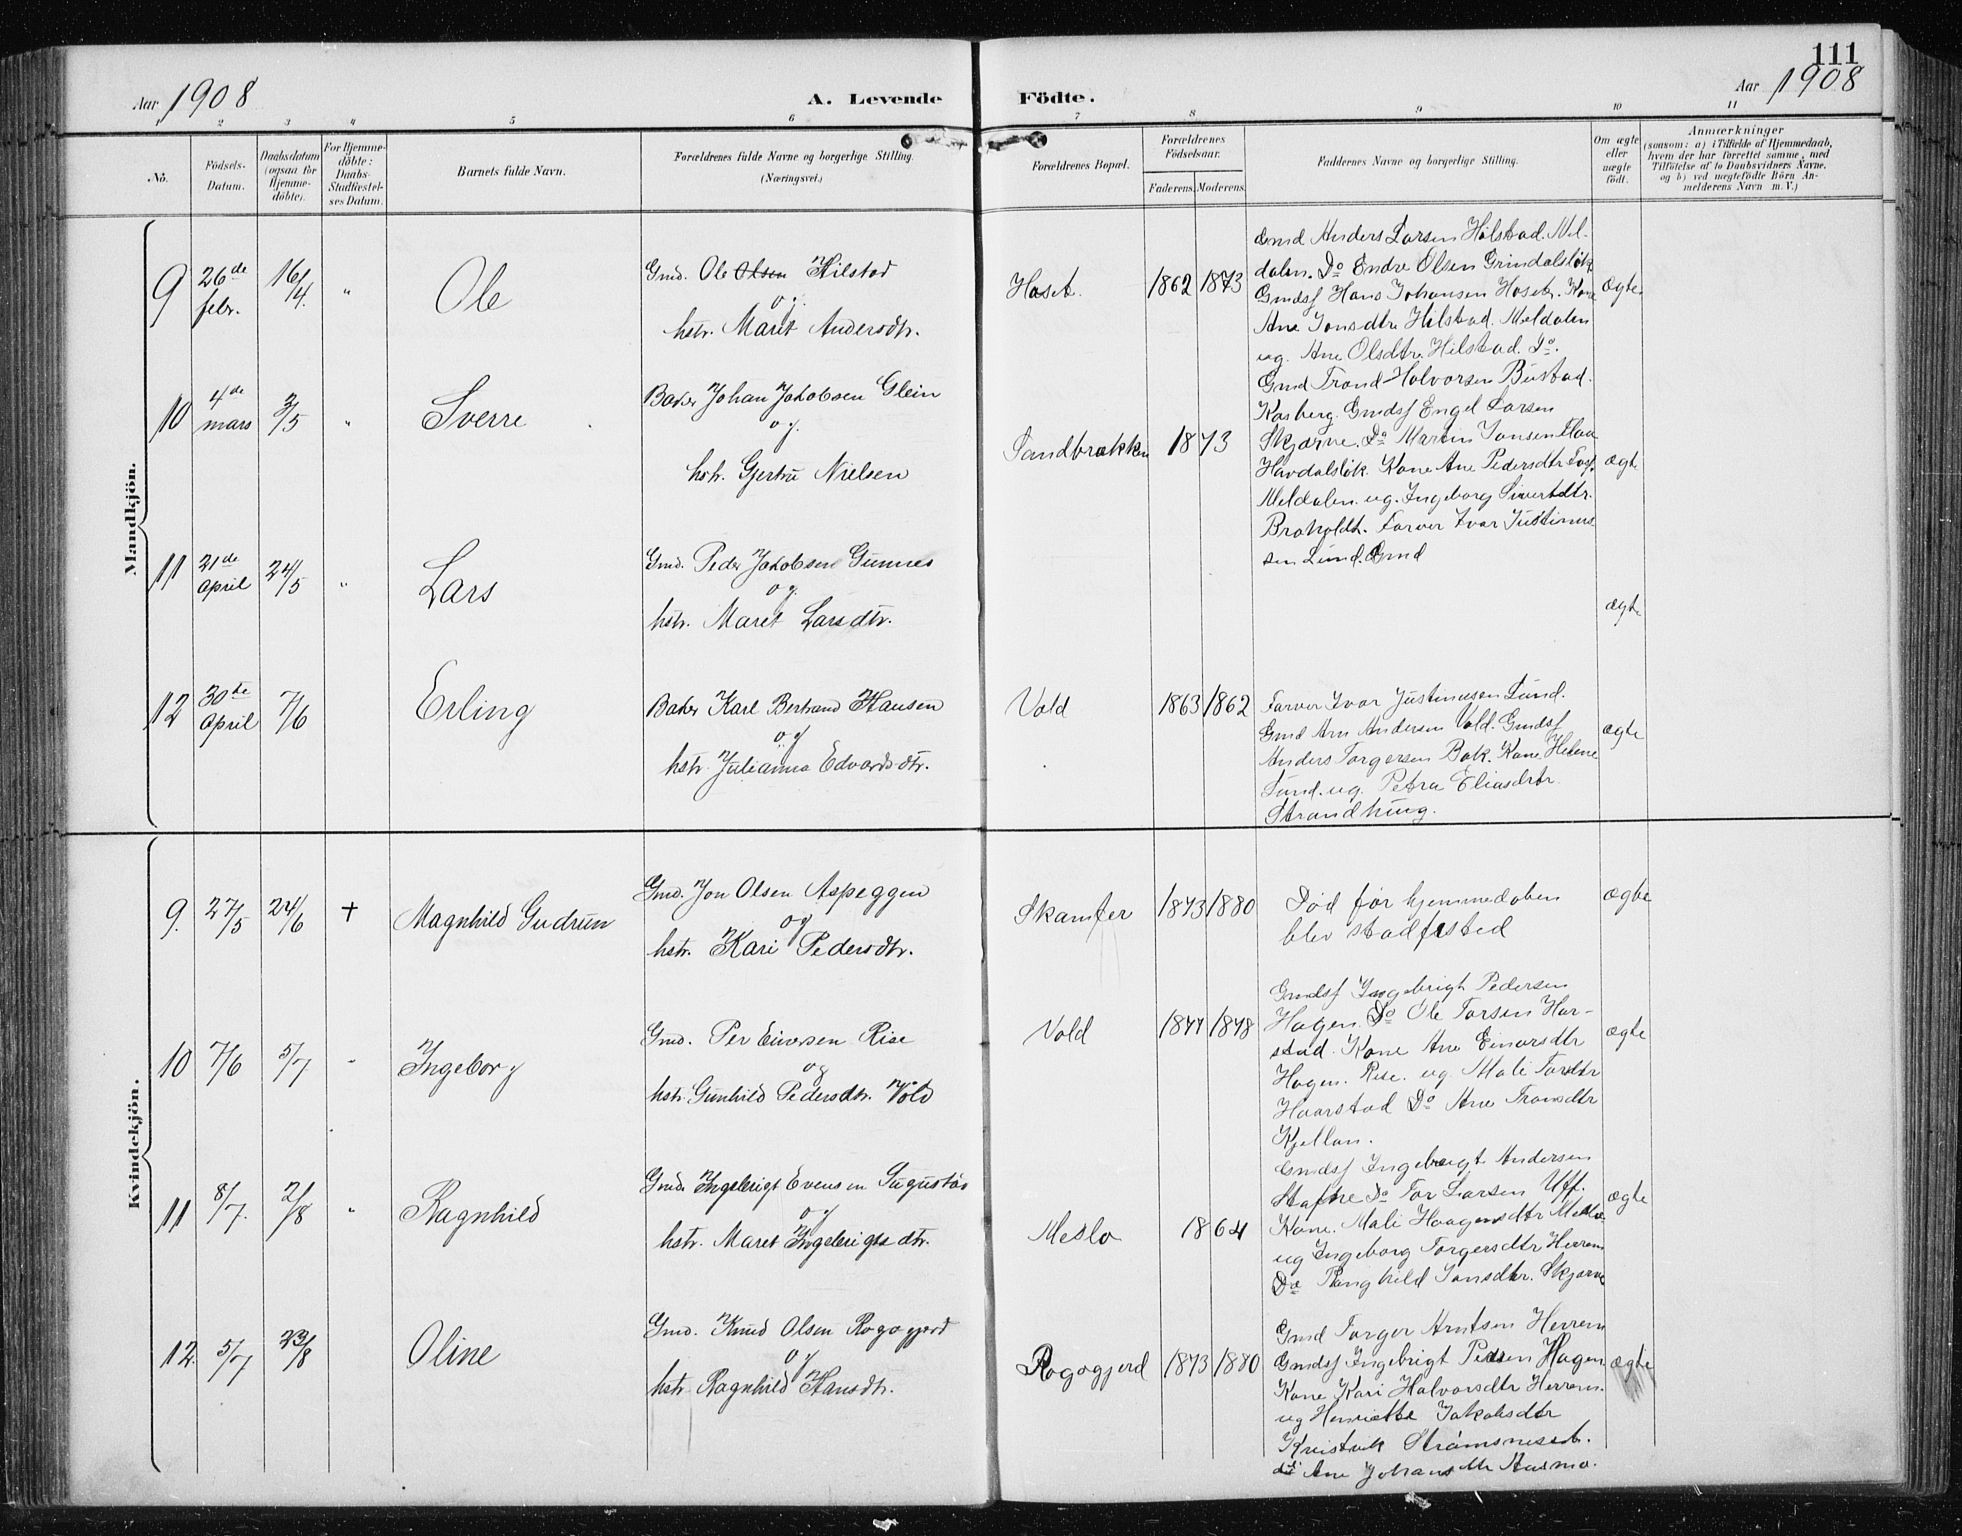 111
Aar 1908
A. Levende
Födte.
Aar 1908
1 2 3 4 5 6 7 8 9 10 11
No.
Födsels-
Datum.
Daabsdatum
(ogsaa for
Hjemme-
döbte).
For Hjemme-
döbte:
Daabs-
Stadfæstel-
ses Datum.
Barnets fulde Navn.
Forældrenes fulde Navne og borgerlige Stilling.
(Næringsvei.)
Forældrenes Bopæl.
Forældrenes
Födselsaar.
Faderens. Moderens.
Faddernes Navne og borgerlige Stilling.
Om ægte
eller
uægte
födt.
Anmærkninger
(saasom: a) i Tilfælde af Hjemmedaab,
hvem der har forrettet samme, med
Tilföielse af to Daabsvidners Navne.
og b) ved uægtefödte Börn An-
melderens Navn m. V.)
Mandkjön.
9 26de febr. 16/4. " Ole
Gmd. Ole Olsen Hilstad
og
hstr. Maret Andersdtr.
Hoset. 1862 1873
Gmd Anders Larsen Hilstad. Mel-
dalen. Do Endre Olsen Grindalsløk
Gmdsf Hans Johansen Hoset. Kone
Ane Jonsdtr Hilstad. Meldalen
ug. Ane Olsdtr. Hilstad. Do.
ægte
10 4de mars 3/5 " Sverre
Baker Johan Jakobsen Glein
og
hstr. Gjertru Nielsen
Sandbrækken 1873
Gmd Trond Halvorsen Bustad.
Kasberg. Gmdsf Engel Larsen
Skjørve. Do Martin Jonsen Flaa
Havdalsløk. Kone Ane Pedersdtr
Meldalen. ug. Ingeborg Sivertdtr.
Braholdt. Farver Ivar Justinus
sen Lund. Gmd
ægte
11 21de April 24/5 " Lars
Gmd. Peder Jakobsen Gunnes
og
hstr. Maret Larsdtr.
ægte
12 30te April 7/6 Erling
Baker Karl Bertrand Hansen
og
hstr. Julianna Edvardsdtr.
Vold 1863 1862
Farver Ivar Justinusen Lund.
Gmd Arn Andersen Vold. Gmdsf
Anders Torgersen Bak. Kone Helene
Lund. ug. Petra Eliasdtr
Strandhung.
ægte
Kvindekjön.
9. 27/5 24/6 + Magnhild Gudrun
Gmd. Jon Olsen Aspeggen
og
hstr. Kari Pedersdtr.
Skamfer 1873 1880
Död før hjemmedaben
blev stadfæsted
ægte
10 7/6 5/7 " Ingeborg
Gmd. Per Einersen Rise
og
hstr. Gunhild Pedersdtr. Vold
Vold 1877 1878
Gmdsf Ingebrigt Pedersen
Hagen. Do Ole Torsen Har-
stad. Kone Ane Einarsdtr
Hagen. Rise. ug. Mali Torsdtr
Haarstad Do Ane Tronsdtr
Kjellan.
ægte
11 8/7. 2/8 " Ragnhild
Gmd. Ingebrigt Evensen
og
hstr. Maret Ingebrigtsdtr.
Meslo 1864
Gmdsf Ingebrigt Andersen
Stafne Do Tor Larsen Uff.
Kone. Mali Haagensdtr Meslo
ug Ingeborg Torgersdtr Herrem
Do Ranghild Jonsdtr. Skjørve
ægte
12. 5/7 23/8 Oline
Gmd. Knud Olsen Rogogjerd
og
hstr. Ragnhild Hansdtr.
Rogogjerd 1873 1880
Gmd Torger Arntsen Herrem
Gmdsf Ingebrigt Pedersen Hagen
Kone Kari Halvorsdtr Herrem.
ug Henriette Jakobsdtr
Kristvik Strømsneset.
do Ane Johansdtr Aasmo.
ægte